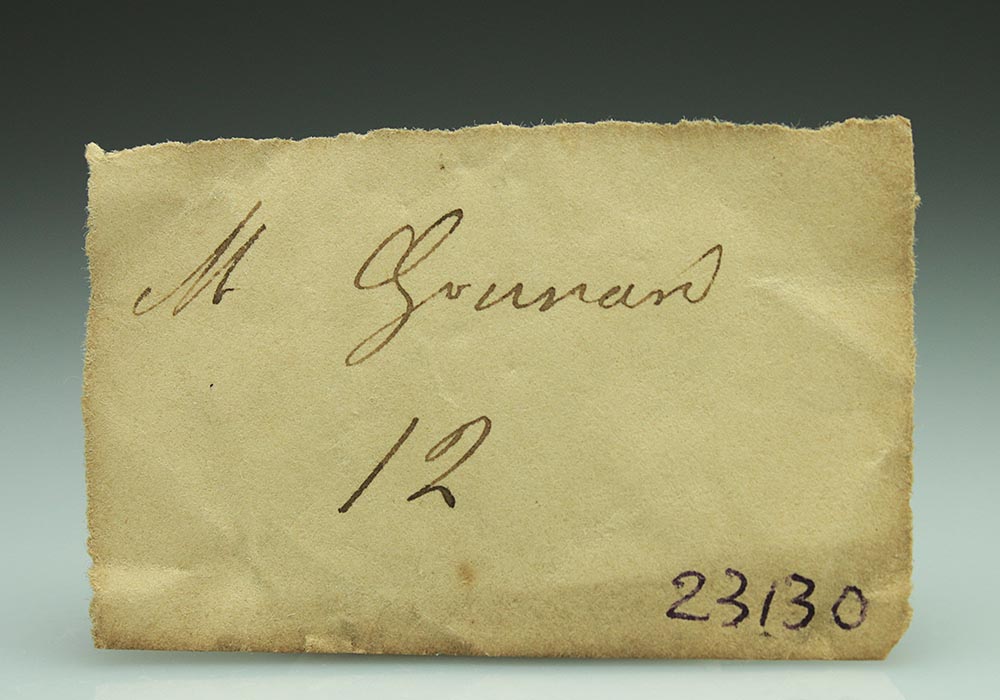 M Gounand
12
23130